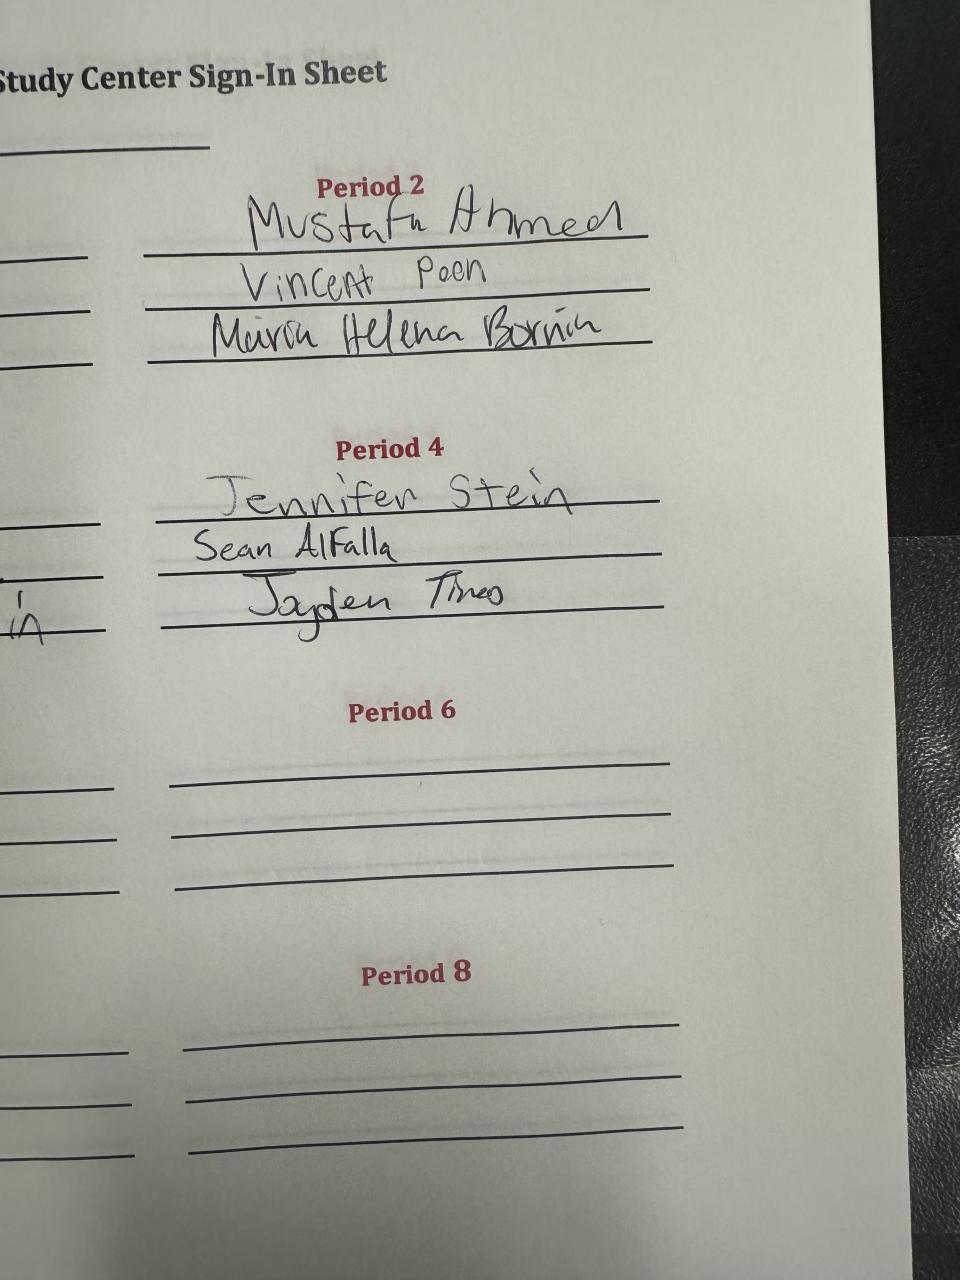 Study Center Sign-In Sheet
Period 2
Mustafa Ahmed
Vincent Poon
Maria Helena Bornia
Period 4
Jennifer Stein
Sean AlFalla
in
Jayden Tineo
Period 6
Period 8